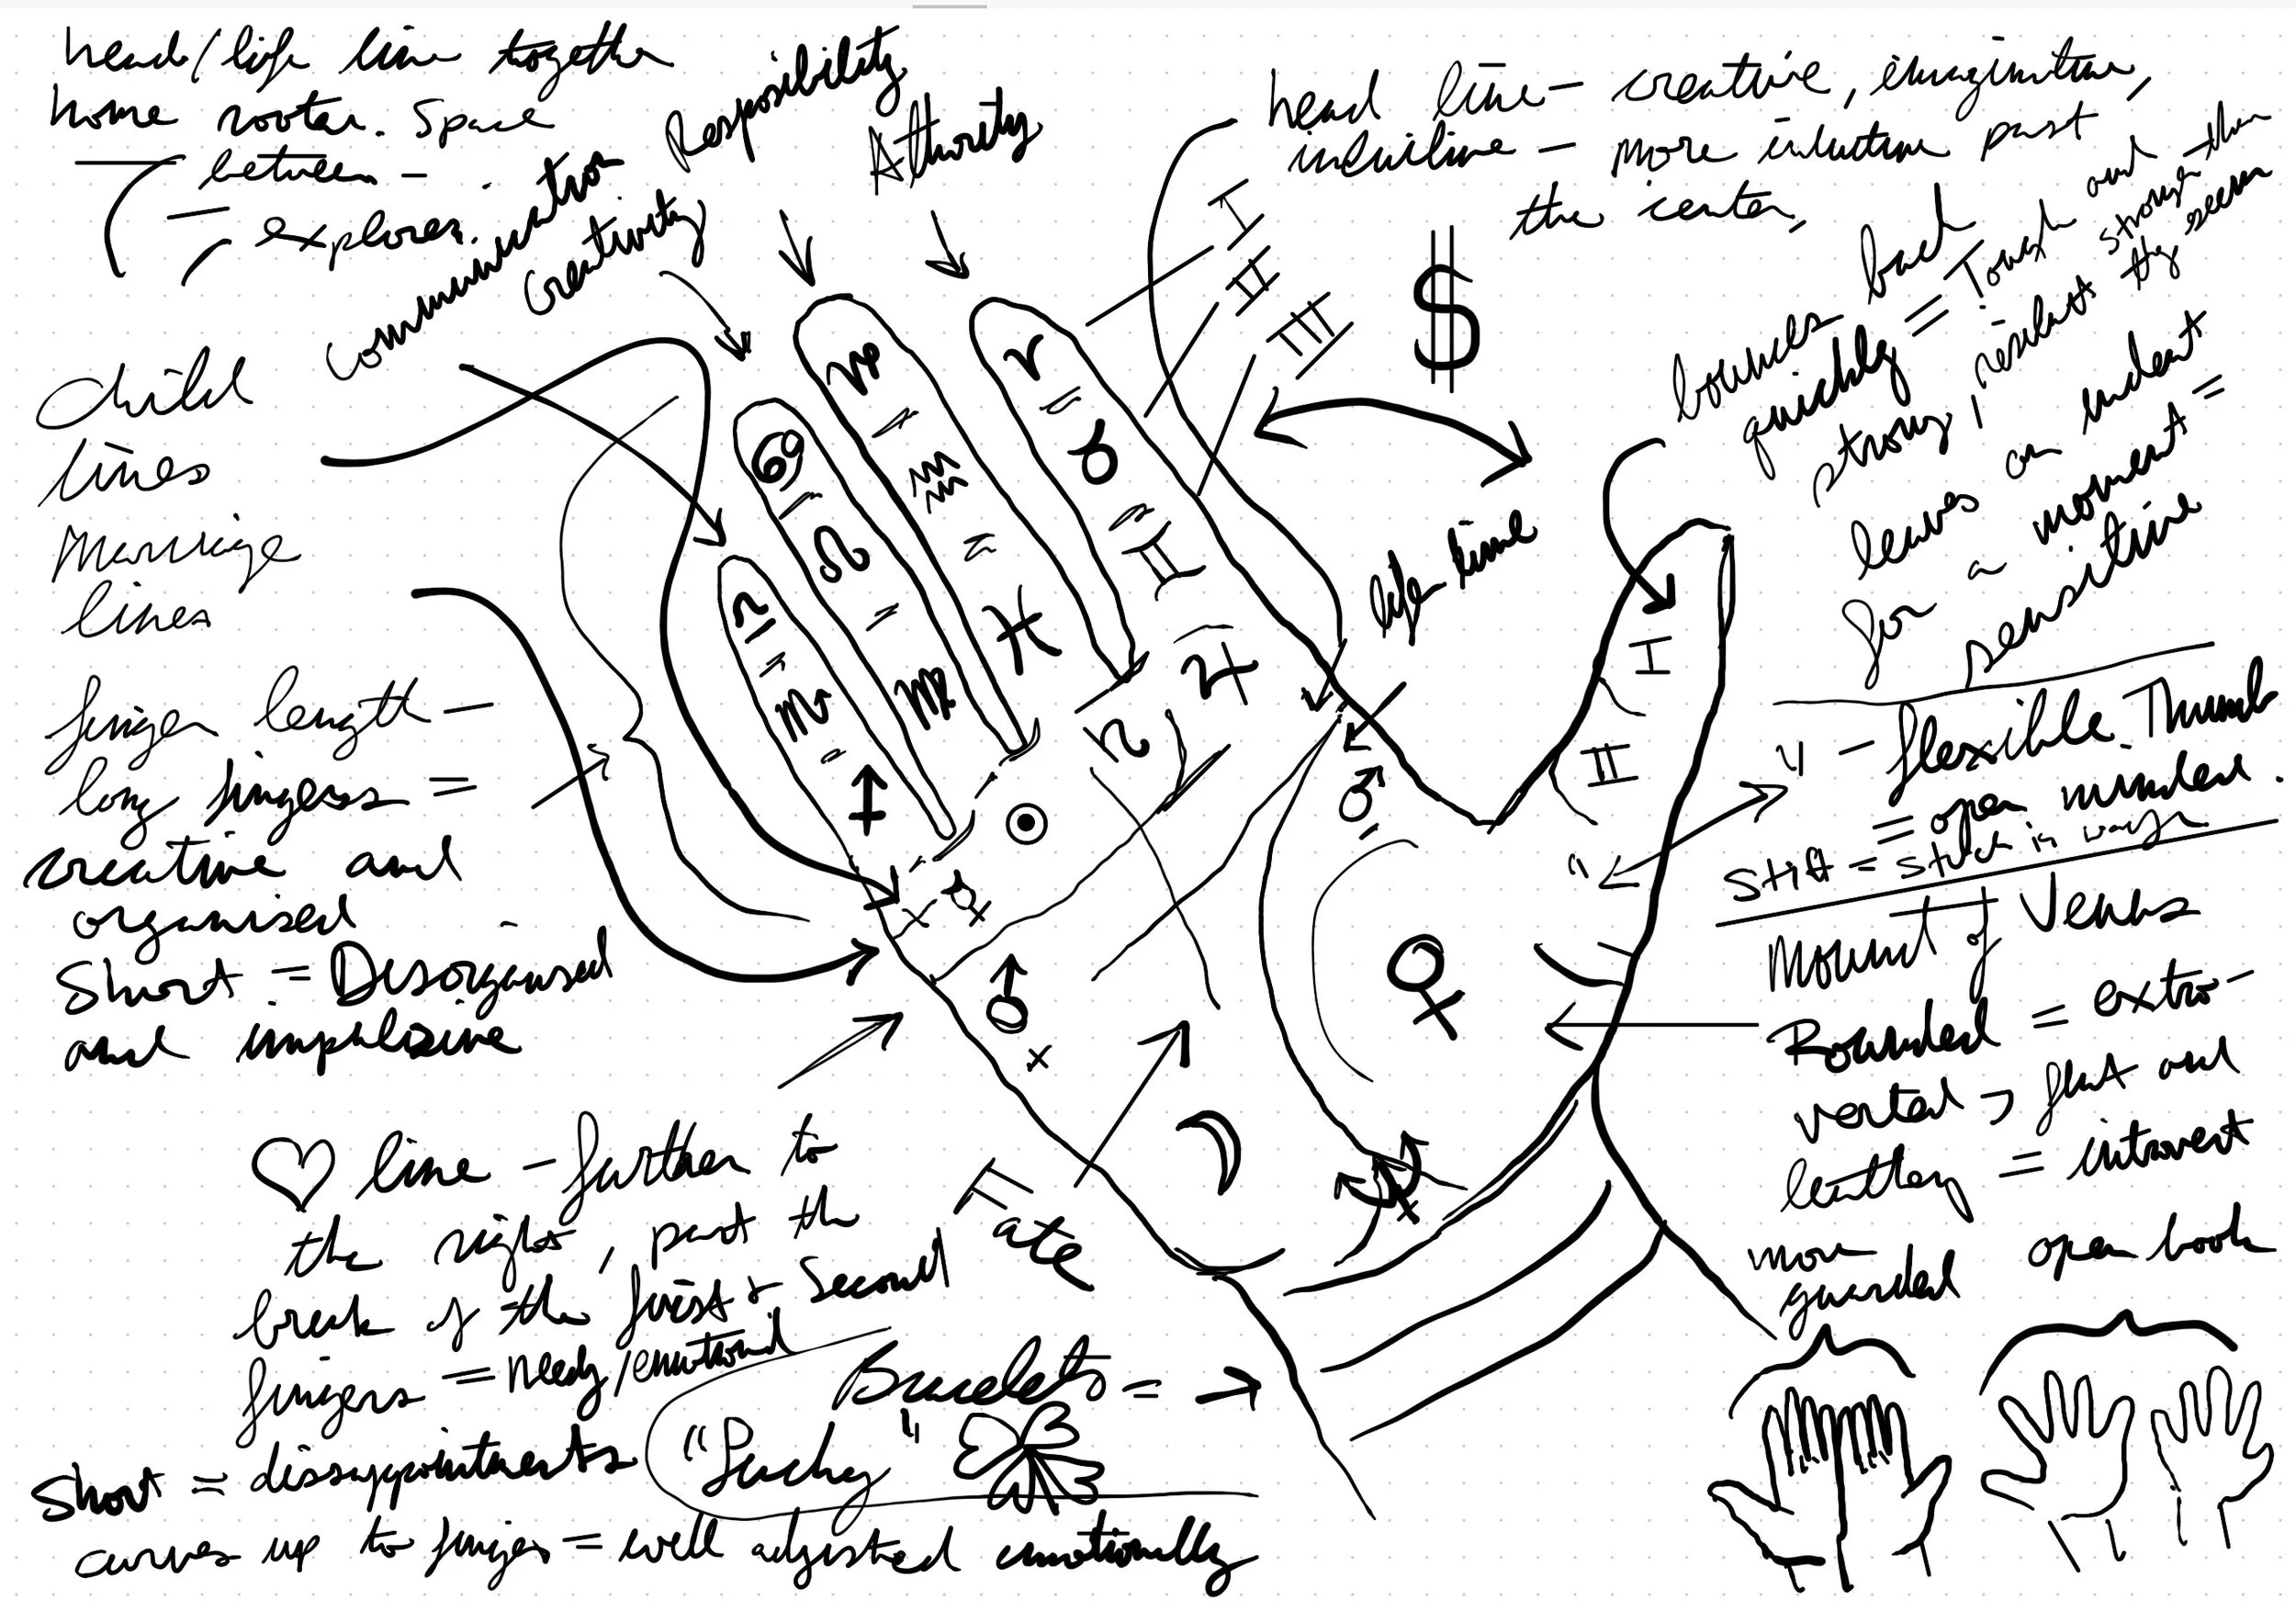 head/life line together
home rooter. Space
between -
explorer.
Communication
Creativity
Resposibility
Athority
head line - creative,
- more intuitive past
the center,
I
II
III
$
bounces back
quickly = Tough and
strong, stronger than
they seem
leaves an indent
for a moment =
sensitive
child
lines
Marriage
lines
finger length -
long fingers =
creative and
organised
Short = Disorganised
and
life line
♈
♉
♊
♑
♒
♓
♋
♌
♍
♎
♏
♃
♄
☉
☿
♂
♂
♀
☽
I
II
" - flexible Thumb
= open minded.
Stiff = stuck in ways
Mount of Venus
Rounded = extro-
verted → flat and
leathery = introvert
more
guarded
open book
♡ line - further to
the right, past the
break of the first & second
fingers = needy/emotional
Short =
curves up to finger = well adjusted emotionally
Fate
Bracelets = →
"Lucky"